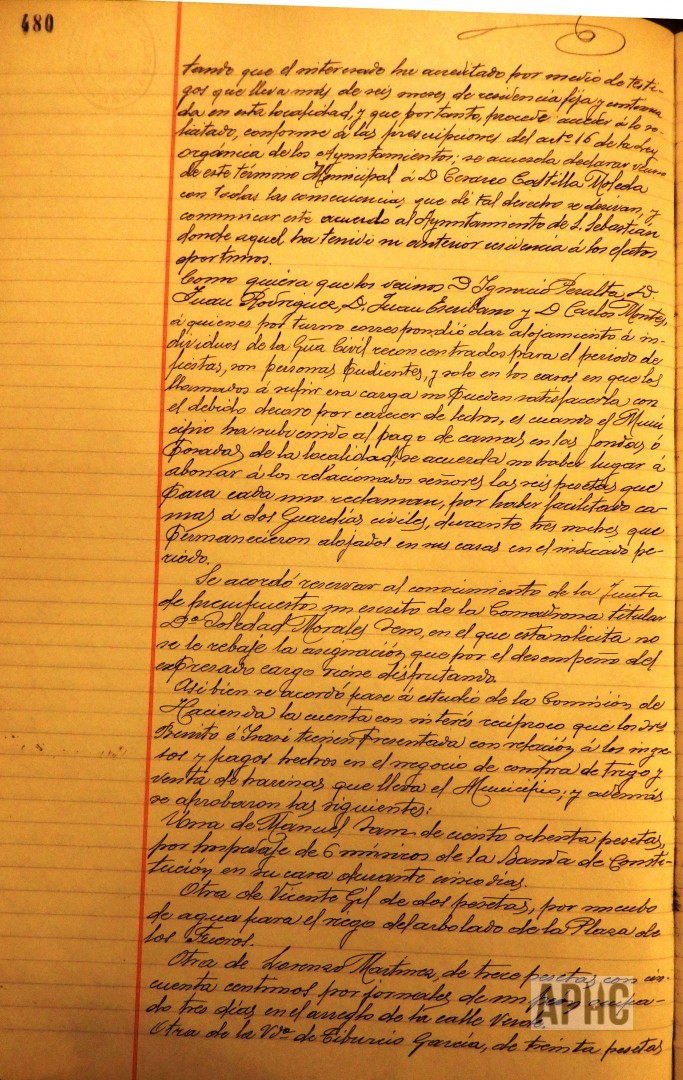 480
tando que el interesado ha acreditado por medio de testi-
gos que lleva más de seis meses de residencia fija y continua-
da en esta localidad, y que por tanto, procede acceder á lo so-
licitado, conforme á las prescripciones del artº 16 de la Ley
orgánica de los Ayuntamientos; se acuerda declarar vecino
de este término Municipal á D. Cesareo Castilla Moleda
con todas las consecuencias que de tal derecho se derivan, y
comunicar este acuerdo al Ayuntamiento de S. Sebastián
donde aquel ha tenido su anterior residencia á los efectos
oportunos.
Como quiera que los vecinos D. Ignacio Peralta, D.
Juan Rodriguez, D. Juan Escribano y D. Carlos Montes,
á quienes por turno correspondió dar alojamiento á in-
dividuos de la Gúa Civil reconcentrados para el periodo de
fiestas, son personas pudientes, y solo en los casos en que los
llamados á sufrir esa carga no pueden satisfacerla con
el debido decoro por carecer de lechos, es cuando el Muni-
cipio ha subvenido al pago de camas en las fondas ó
Posadas de la localidad, se acuerda no haber lugar á
abonar á los relacionados señores las seis pesetas que
para cada uno reclaman, por haber facilitado ca-
mas á dos Guardias civiles, durante tres noches que
permanecieron alojados en sus casas en el indicado pe-
riodo.
Se acordó reservar al conocimiento de la Junta
de presupuestos un escrito de la Comadrona titular
Dª Soledad Morales en el que esta solicita no
se le rebaje la asignación que por el desempeño del
expresado cargo viene disfrutando.
Asi bien se acordó pase á estudio de la Comisión de
Hacienda la cuenta con interés recíproco que los Sres
Benito é tienen presentada con relación á los ingre-
sos y pagos hechos en el negocio de compra de trigo y
venta de harinas que lleva el Municipio; y además
se aprobaron las siguientes:
Una de Manuel de ciento ochenta pesetas,
por hospedaje de 6 músicos de la Banda de Consti-
tución, en su casa durante cinco días.
Otra de Vicente Gil de dos pesetas, por un cubo
de agua para el riego del arbolado de la Plaza de
los Fueros.
Otra de Lorenzo Martinez, de trece pesetas con cin-
cuenta centimos por jornales de un peon ocupa-
do tres días en el arreglo de la calle Verde.
Otra de la Vdª de Tiburcio García, de treinta pesetas
APHC